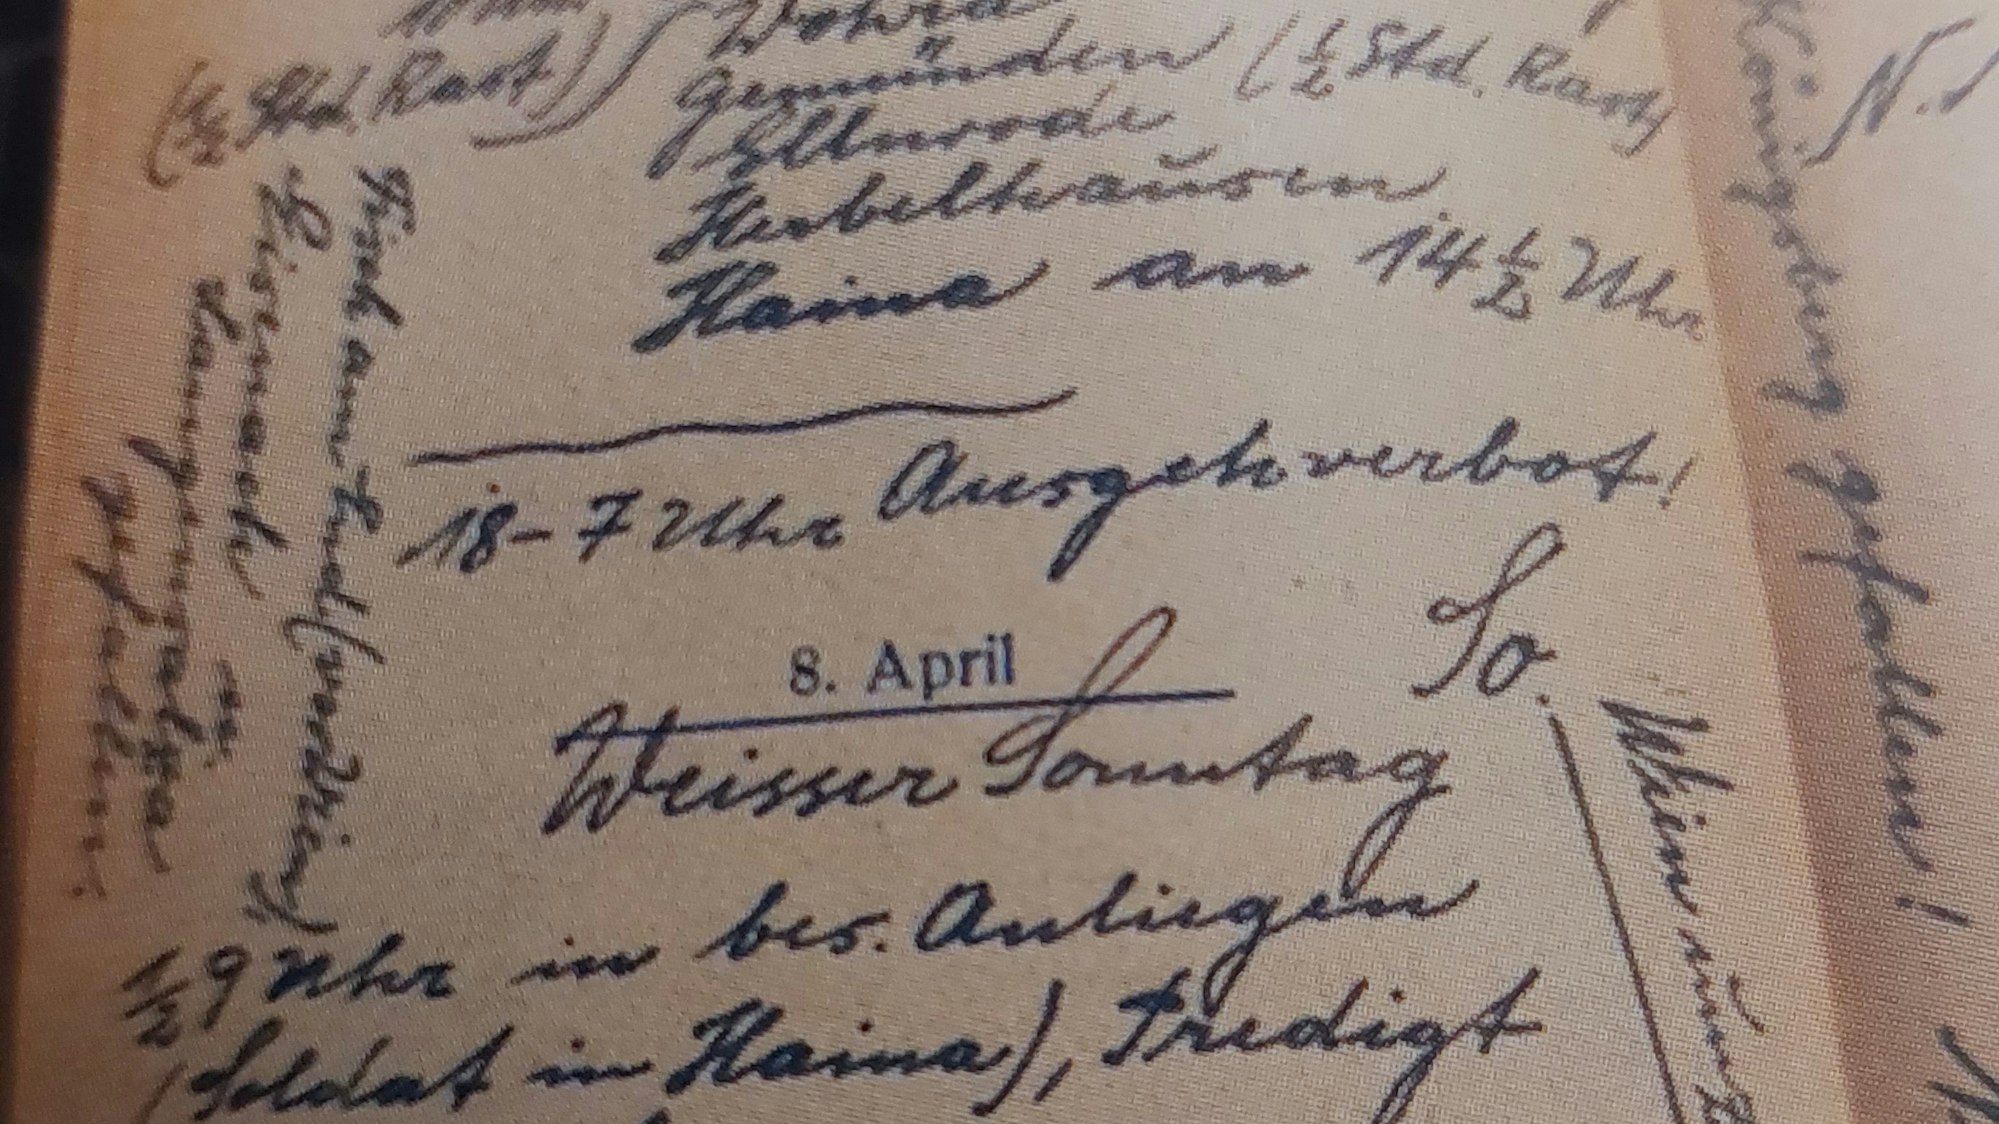 Wohra
(½ Std. Rast)
Gemünden (½ Std. Rast)
Ellnrode
Herbelhausen
Haina an 14½ Uhr
18–7 Uhr Ausgehverbot!
8. April
So.
Weisser Sonntag
½9 Uhr in bes. Anliegen
(Soldat in Haina), Predigt
Eisenach
Langensalza
gefallen.
Königsberg gefallen!
Wien